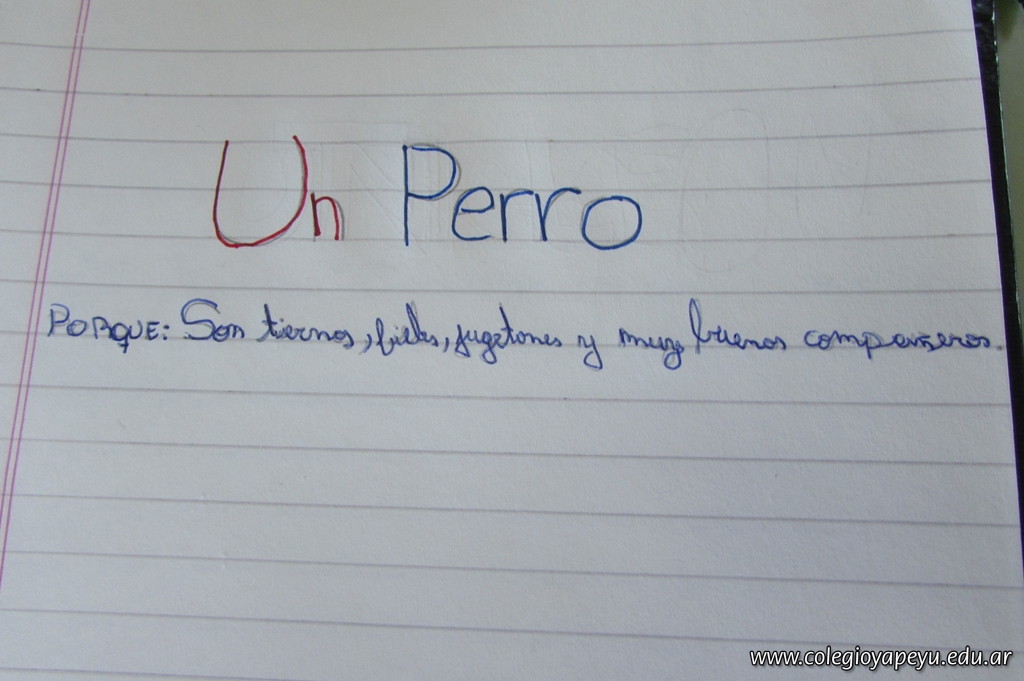 Un Perro
PORQUE: Son tiernos, fieles, jugetones y muy buenos compañeros.
www.colegioyapeyu.edu.ar